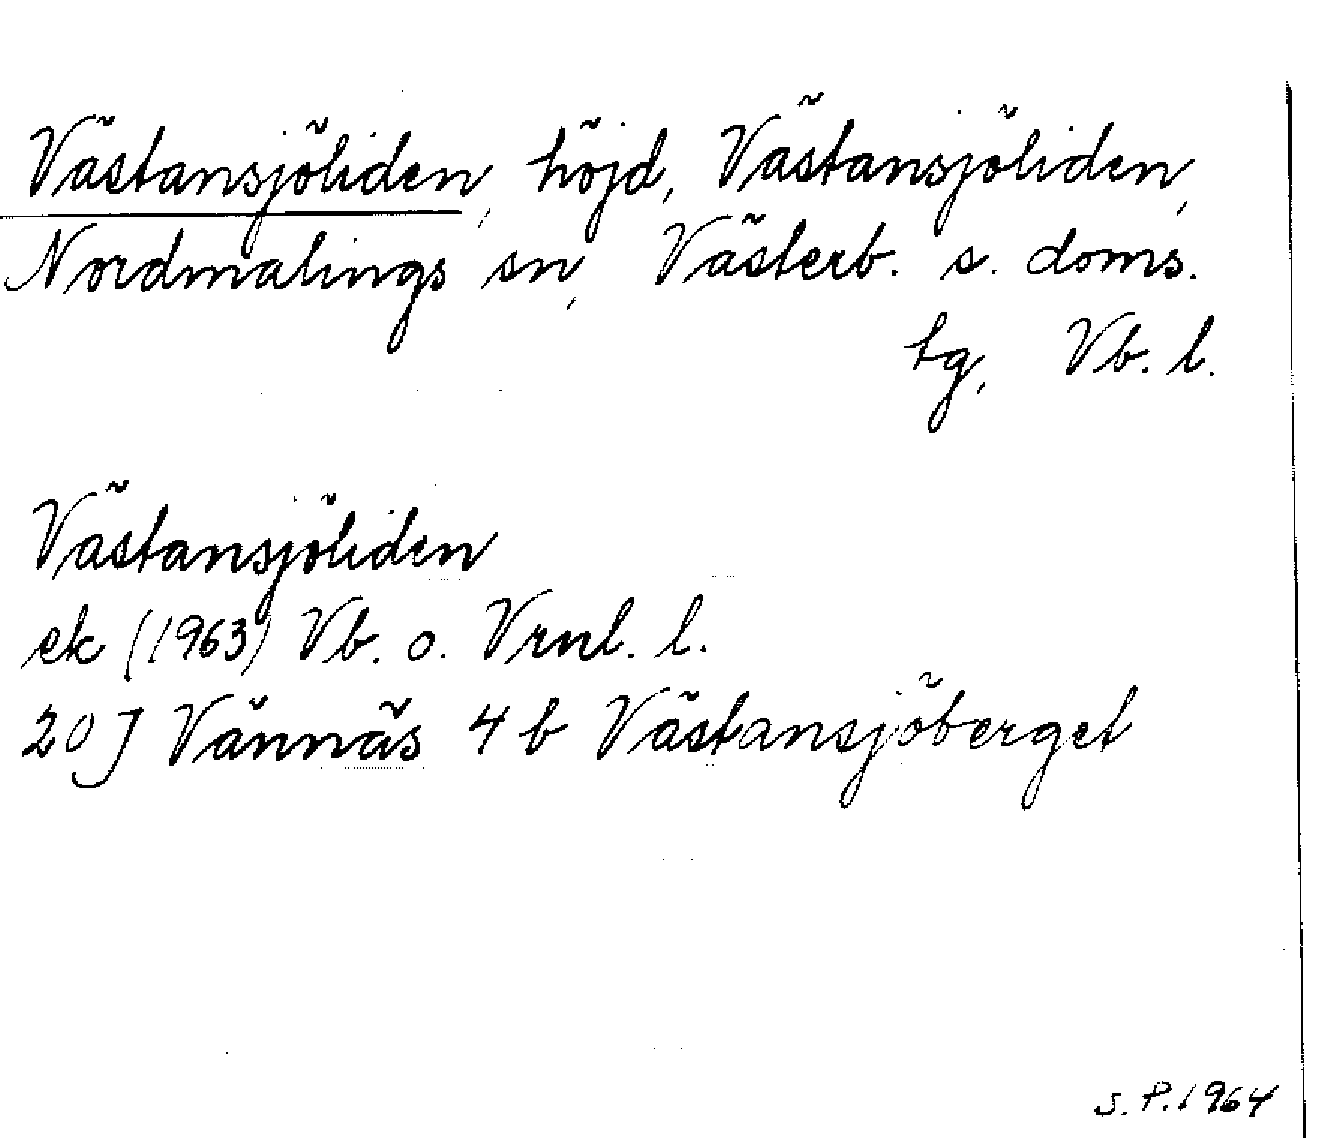 Västansjöliden, höjd, Västansjöliden,
Nordmalings sn, Västerb. s. doms.
tg, Vb. l.
Västansjöliden
ek (1963) Vb. o. Vrnl. l.
20J Vännäs 4b Västansjöberget
S.P.1964